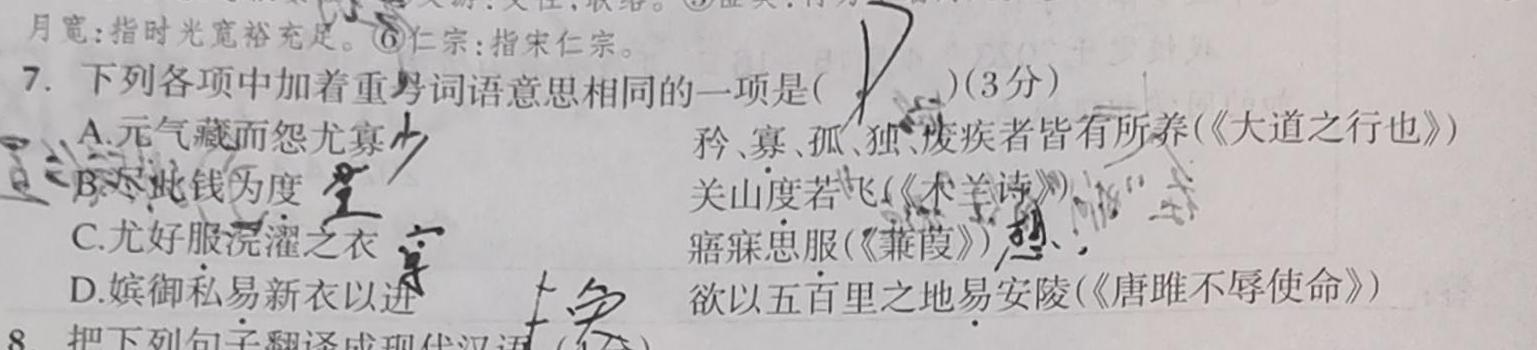 月宽:指时光宽裕充足。⑥仁宗:指宋仁宗。
7. 下列各项中加着重号词语意思相同的一项是( D )(3分)
A.元气藏而怨尤寡 少 矜、寡、孤、独、废疾者皆有所养(《大道之行也》)
B.尽此钱为度 关山度若飞(《木兰诗》)
C.尤好服浣濯之衣 穿 寤寐思服(《蒹葭》) 想
D.嫔御私易新衣以进 换 欲以五百里之地易安陵(《唐雎不辱使命》)
8 把下列句子翻译成现代汉语